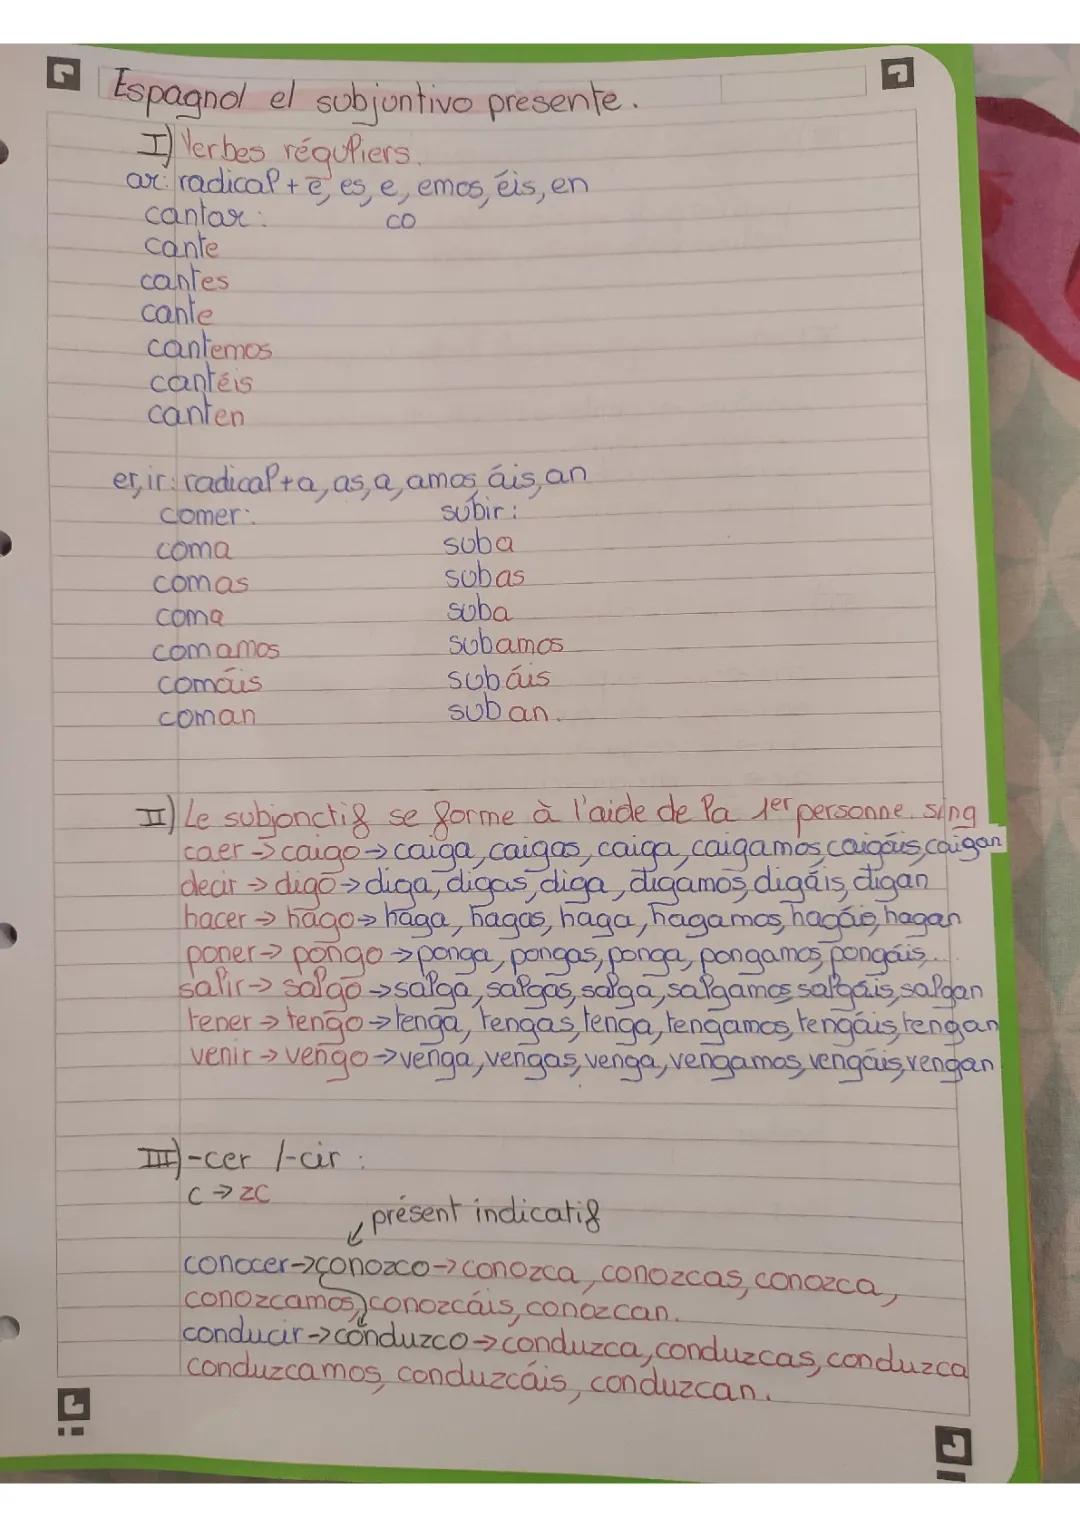 Espagnol el subjontivo presente.
I) Verbes réguliers.
ar: radical + e, es, e, emos, éis, en
cantar: co
cante
cantes
cante
cantemos
cantéis
canten
er, ir: radical + a, as, a, amos, áis, an
comer: subir:
coma suba
comas subas
coma suba
comamos subamos
comáis subáis
coman suban.
II) Le subjonctif se forme à l'aide de la 1er personne. sing
caer → caigo → caiga, caigas, caiga, caigamos, caigáis, caigan
decir → digo → diga, digas, diga, digamos, digáis, digan
hacer → hago → haga, hagas, haga, hagamos, hagáis, hagan
poner → pongo → ponga, pongas, ponga, pongamos, pongáis...
salir → salgo → salga, salgas, salga, salgamos, salgáis, salgan
tener → tengo → tenga, tengas, tenga, tengamos, tengáis, tengan
venir → vengo → venga, vengas, venga, vengamos, vengáis, vengan
III) -cer /-cir :
c → zc
présent indicatif
conocer → conozco → conozca, conozcas, conozca,
conozcamos, conozcáis, conozcan.
conducir → conduzco → conduzca, conduzcas, conduzca
conduzcamos, conduzcáis, conduzcan.